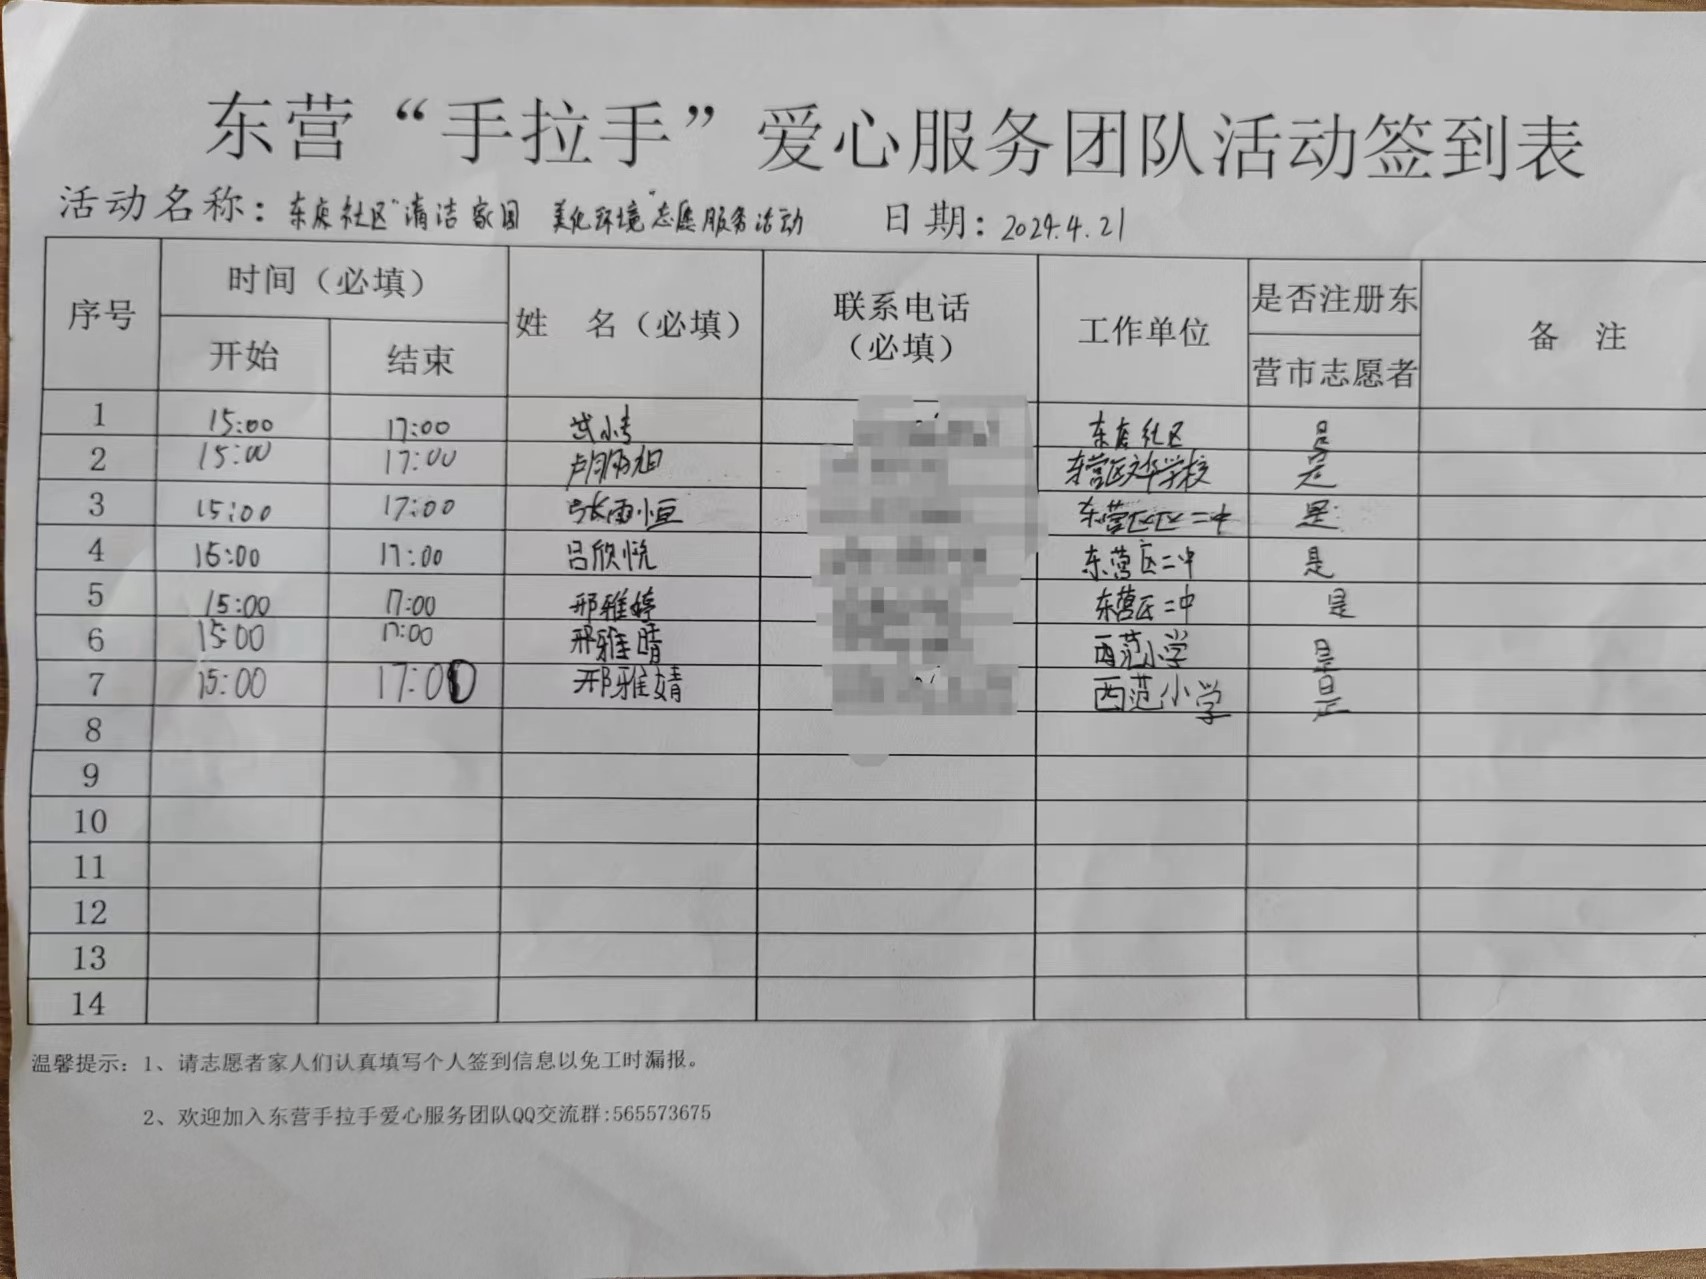 东营“手拉手”爱心服务团队活动签到表
活动名称：东虎社区“清洁家园 美化环境”志愿服务活动 日期：2024.4.21
序号 时间（必填） 姓 名（必填） 联系电话（必填） 工作单位 是否注册东营市志愿者 备 注
开始 结束
1 15:00 17:00 东虎社区 是
2 15:00 17:00 东营区文华学校 是
3 15:00 17:00 张雨恒 东营区二中 是
4 15:00 17:00 吕欣悦 东营区二中 是
5 15:00 17:00 邢雅婷 东营区二中 是
6 15:00 17:00 邢雅晴 西范小学 是
7 15:00 17:00 邢雅婧 西范小学 是
8
9
10
11
12
13
14
温馨提示：1、请志愿者家人们认真填写个人签到信息以免工时漏报。
2、欢迎加入东营手拉手爱心服务团队QQ交流群:565573675